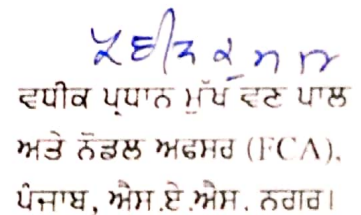 ਵਧੀਕ ਪ੍ਰਧਾਨ ਮੁੱਖ ਵਣ ਪਾਲ
ਅਤੇ ਨੋਡਲ ਅਫਸਰ (FCA),
ਪੰਜਾਬ, ਐਸ.ਏ.ਐਸ. ਨਗਰ।